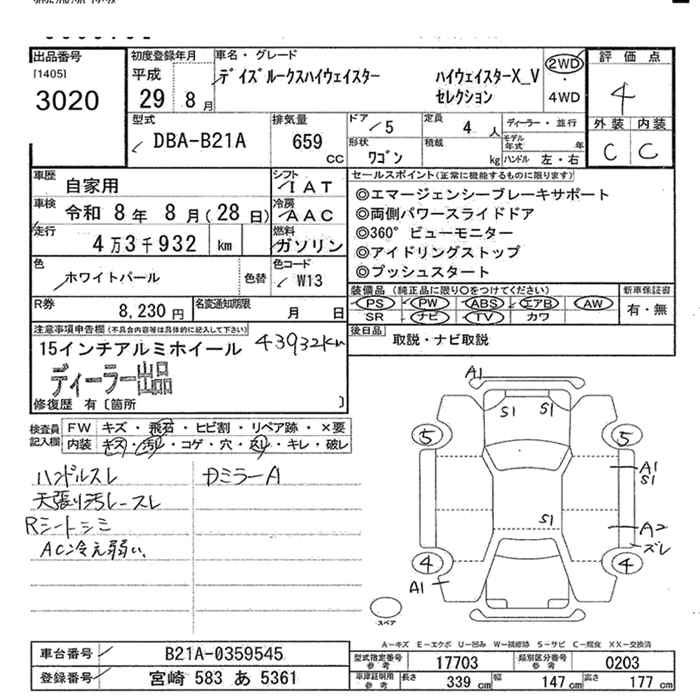 出品番号
[1405]
3020
初度登録年月
平成
29 8月
車名・グレード
デイズルークスハイウェイスター ハイウェイスターX_V
セレクション
2WD
・
4WD
評価点
4
外装 内装
C C
型式
DBA-B21A
排気量
659
CC
ドア
5
定員
4 人
ディーラー・並行
形状
ワゴン
積載
kg
モデル
年式 年
ハンドル 左・右
車歴
自家用
シフト
IAT
車検 令和 8年 8月(28日)
冷房
AAC
走行
4万3千932 km
燃料
ガソリン
色
ホワイトパール
色替
色コード
W13
R券
8,230円
名変通知期限
月 日
セールスポイント(正常に機能するものに限ります)
◎エマージェンシーブレーキサポート
◎両側パワースライドドア
◎360° ビューモニター
◎アイドリングストップ
◎プッシュスタート
装備品 (純正品に限り○をつけてください)
PS PW ABS エアB AW
SR ナビ TV カワ
新車保証書
有・無
後日品
取説・ナビ取説
注意事項申告欄(不具合内容等は具体的に記入して下さい)
15インチアルミホイール 43932km
ディーラー出品
修復歴 有〔箇所 〕
検査員
記入欄
FW キズ・飛石・ヒビ割・リペア跡・×要
内装 キズ・汚れ・コゲ・穴・スレ・キレ・破レ
ハンドルスレ
天張り汚レースレ
Rシートシミ
AC冷え弱い
カミラーA
A1
S1 S1
5 5
A1
S1
S1
A2
ズレ
4 4
A1
スペア
A－キズ E－エクボ U－凹み W－補修跡 S－サビ C－腐食 XX－交換済
車台番号 B21A-0359545
登録番号 宮崎 583 あ 5361
型式指定番号
参考
17703
類別区分番号
参考
0203
車庫証明用
参考
長さ 339 cm 幅 147 cm 高さ 177 cm